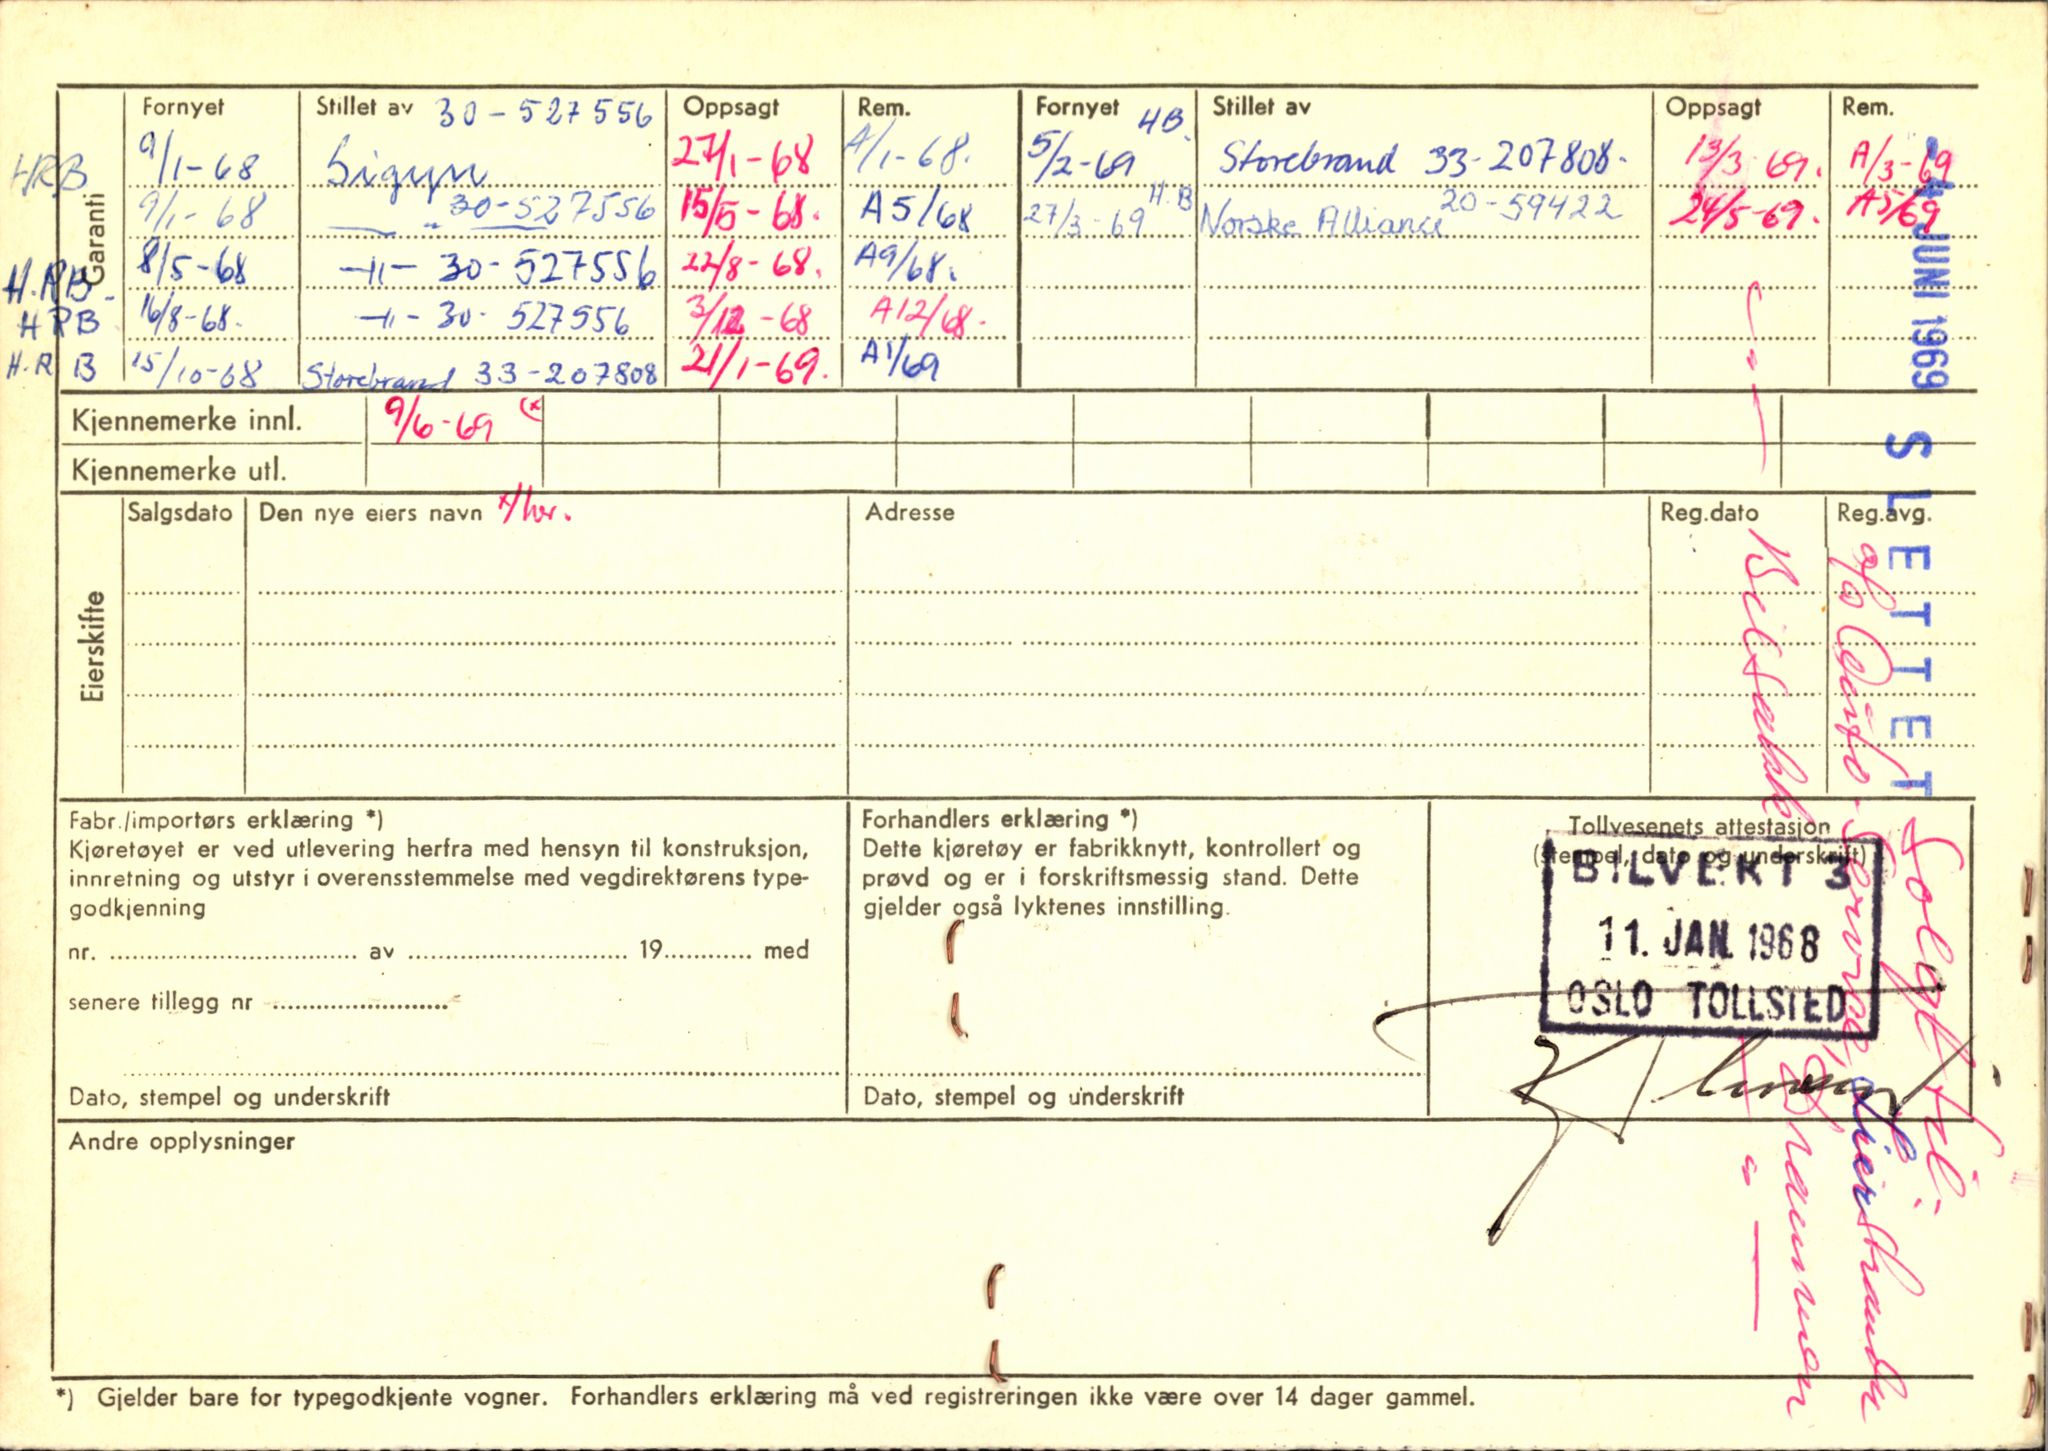 Garanti
Fornyet Stillet av 30-527556 Oppsagt Rem. Fornyet HB. Stillet av Oppsagt Rem.
HRB 9/1-68 Sigyn 27/1-68 A/1-68. 5/2-69 Storebrand 33-207808. 13/3-69. A/3-69
9/1-68 —"— 30-527556 15/5-68. A5/68 27/3-69 H.B Norske Alliance 20-59422 24/5-69. A5/69
H.RB. 8/5-68 -"- 30-527556 22/8-68. A9/68.
HRB 16/8-68. -"- 30-527556 3/12-68 A12/68.
H.R B 15/10-68 Storebrand 33-207808 21/1-69. A1/69
Kjennemerke innl. 9/6-69 (x
Kjennemerke utl.
Eierskifte
Salgsdato Den nye eiers navn Adresse Reg.dato Reg.avg.
- 4 JUNI 1969 SLETTET
Solgt til
Fabr./importørs erklæring *)
Kjøretøyet er ved utlevering herfra med hensyn til konstruksjon,
innretning og utstyr i overensstemmelse med vegdirektørens type-
godkjenning
nr. av 19 med
senere tillegg nr
Dato, stempel og underskrift
Forhandlers erklæring *)
Dette kjøretøy er fabrikknytt, kontrollert og
prøvd og er i forskriftsmessig stand. Dette
gjelder også lyktenes innstilling.
Dato, stempel og underskrift
Tollvesenets attestasjon
(stempel, dato og underskrift)
BILVEKT 3
11. JAN. 1968
OSLO TOLLSTED
Drammen
Andre opplysninger
*) Gjelder bare for typegodkjente vogner. Forhandlers erklæring må ved registreringen ikke være over 14 dager gammel.